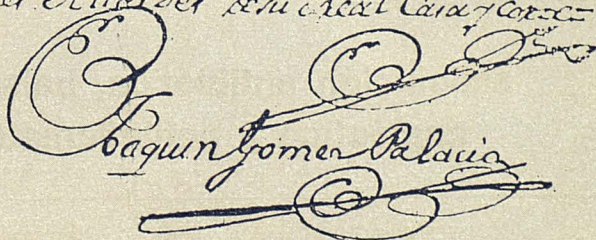 de su Real Casa y Corte
Joaquin Gomez Palacio